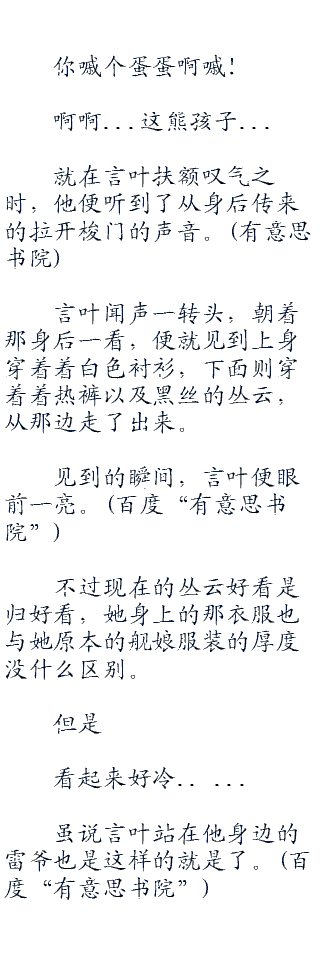 你喊个蛋蛋啊喊!
啊啊...这熊孩子...
就在言叶扶额叹气之
时，他便听到了从身后传来
的拉开梭门的声音。(有意思
书院)
言叶闻声一转头，朝着
那身后一看，便就见到上身
穿着着白色衬衫，下面则穿
着着热裤以及黑丝的丛云，
从那边走了出来。
见到的瞬间，言叶便眼
前一亮。(百度“有意思书
院”)
不过现在的丛云好看是
归好看，她身上的那衣服也
与她原本的舰娘服装的厚度
没什么区别。
但是
看起来好冷.. ...
虽说言叶站在他身边的
雷爷也是这样的就是了。(百
度“有意思书院”)